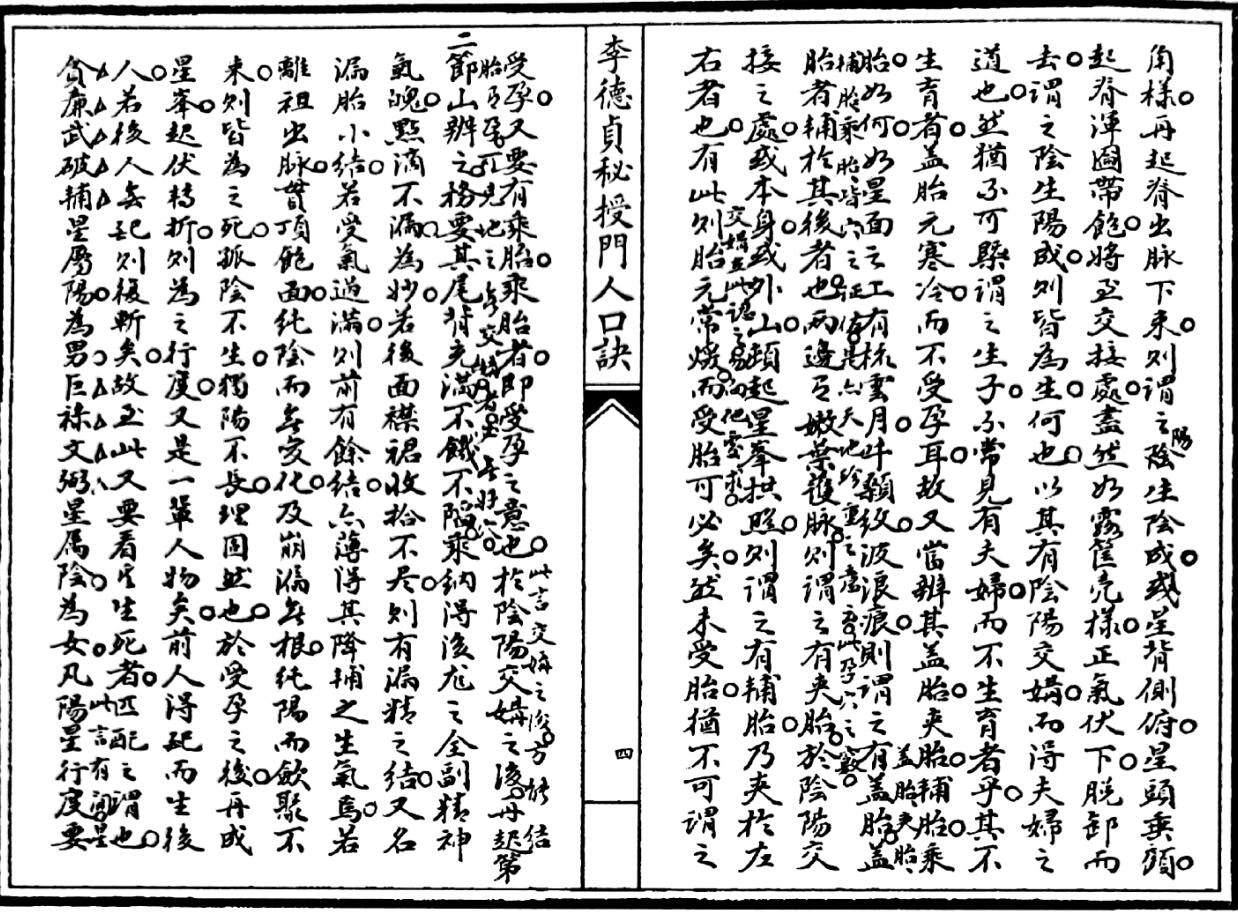 角樣再起脊出脉下來則謂之陰生陰成或星背側俯星頭垂頭
陽
起脊渾圓帶飽將至交接處盡然如霧筐壳樣正氣伏下脱卸而
去謂之陰生陽成則皆為生何也以其有陰陽交媾而得夫婦之
道也然猶不可槩謂之生子不常見有夫婦而不生育者乎其不
生育者盖胎元寒冷而不受孕耳故又當辨其盖胎夾胎輔胎乘
胎如何如星面之上有梳雲月牙顙紋波浪痕則謂之有盖胎盖
盖胎夾胎
輔胎乘胎皆穴之証佐是亦天地珍重之意
此孕穴之竅
胎者輔於其後者也兩邊有嫩葉護脉則謂之有夾胎於陰陽交
接之處或本身或外山頓起星峯拱照則謂之有輔胎乃夾於左
交媾在此認之易而他要求
右者也有此則胎元常煖而受胎可必矣然未受胎猶不可謂之
李德貞秘授門人口訣
四
受孕又要有乘胎乘胎者即受孕之意也於陰陽交媾之後再起第
此言交媾之後方能結
胎乃孕可見地之
交媾者
二節山辨之務要其尾背充滿不餓不陷乘納得後龙之全副精神
氣魄點滴不漏為妙若後面襟裙收拾不尽則有漏精之結又名
漏胎小結若受氣過滿則前有餘結亦薄得其降輔之生氣焉若
離祖出脉貫頂飽面纯陰而無变化及崩漏無根纯陽而歛聚不
來則皆為之死孤陰不生獨陽不長理固然也於受孕之後再成
星峯起伏轉折則為之行度又是一輩人物矣前人得配而生後
人若後人無配則復斬矣故至此又要看生生死者匹配之謂也
此言有
貪廉武破輔星属陽為男巨祿文弼星属陰為女凡陽星行度要